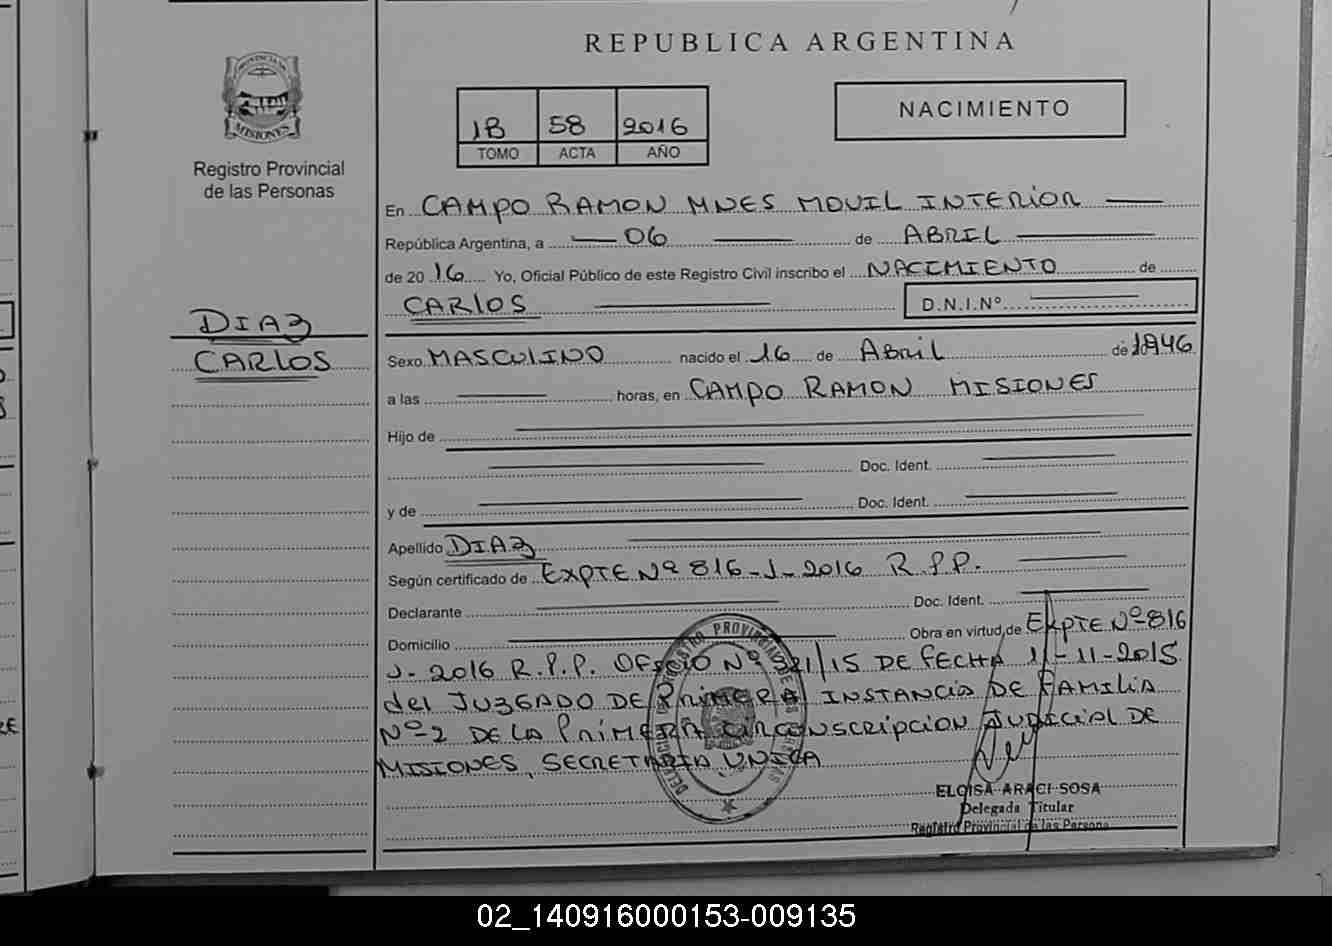 REPUBLICA ARGENTINA
PROVINCIA DE
MISIONES
Registro Provincial
de las Personas
1B 58 2016
TOMO ACTA AÑO
NACIMIENTO
En CAMPO RAMON MNES MOVIL INTERIOR
República Argentina, a 06 de ABRIL
de 2016 Yo, Oficial Público de este Registro Civil inscribo el NACIMIENTO de
CARLOS D.N.I.Nº
DIAZ
CARLOS
Sexo MASCULINO nacido el 16 de Abril de 1946
a las horas, en CAMPO RAMON MISIONES
Hijo de
Doc. Ident.
y de Doc. Ident.
Apellido DIAZ
Según certificado de EXPTE Nº 816-J-2016 R.P.P.
Declarante Doc. Ident.
Domicilio Obra en virtud de EXPTE Nº 816
J-2016 R.P.P. OFICIO Nº 921/15 DE FECHA 11-11-2015
del JUZGADO DE PRIMERA INSTANCIA DE FAMILIA
Nº 2 DE LA PRIMERA CIRCONSCRIPCION JUDICIAL DE
MISIONES, SECRETARIA UNICA
ELOISA ARACI SOSA
Delegada Titular
Registro Provincial de las Persona
02_140916000153-009135